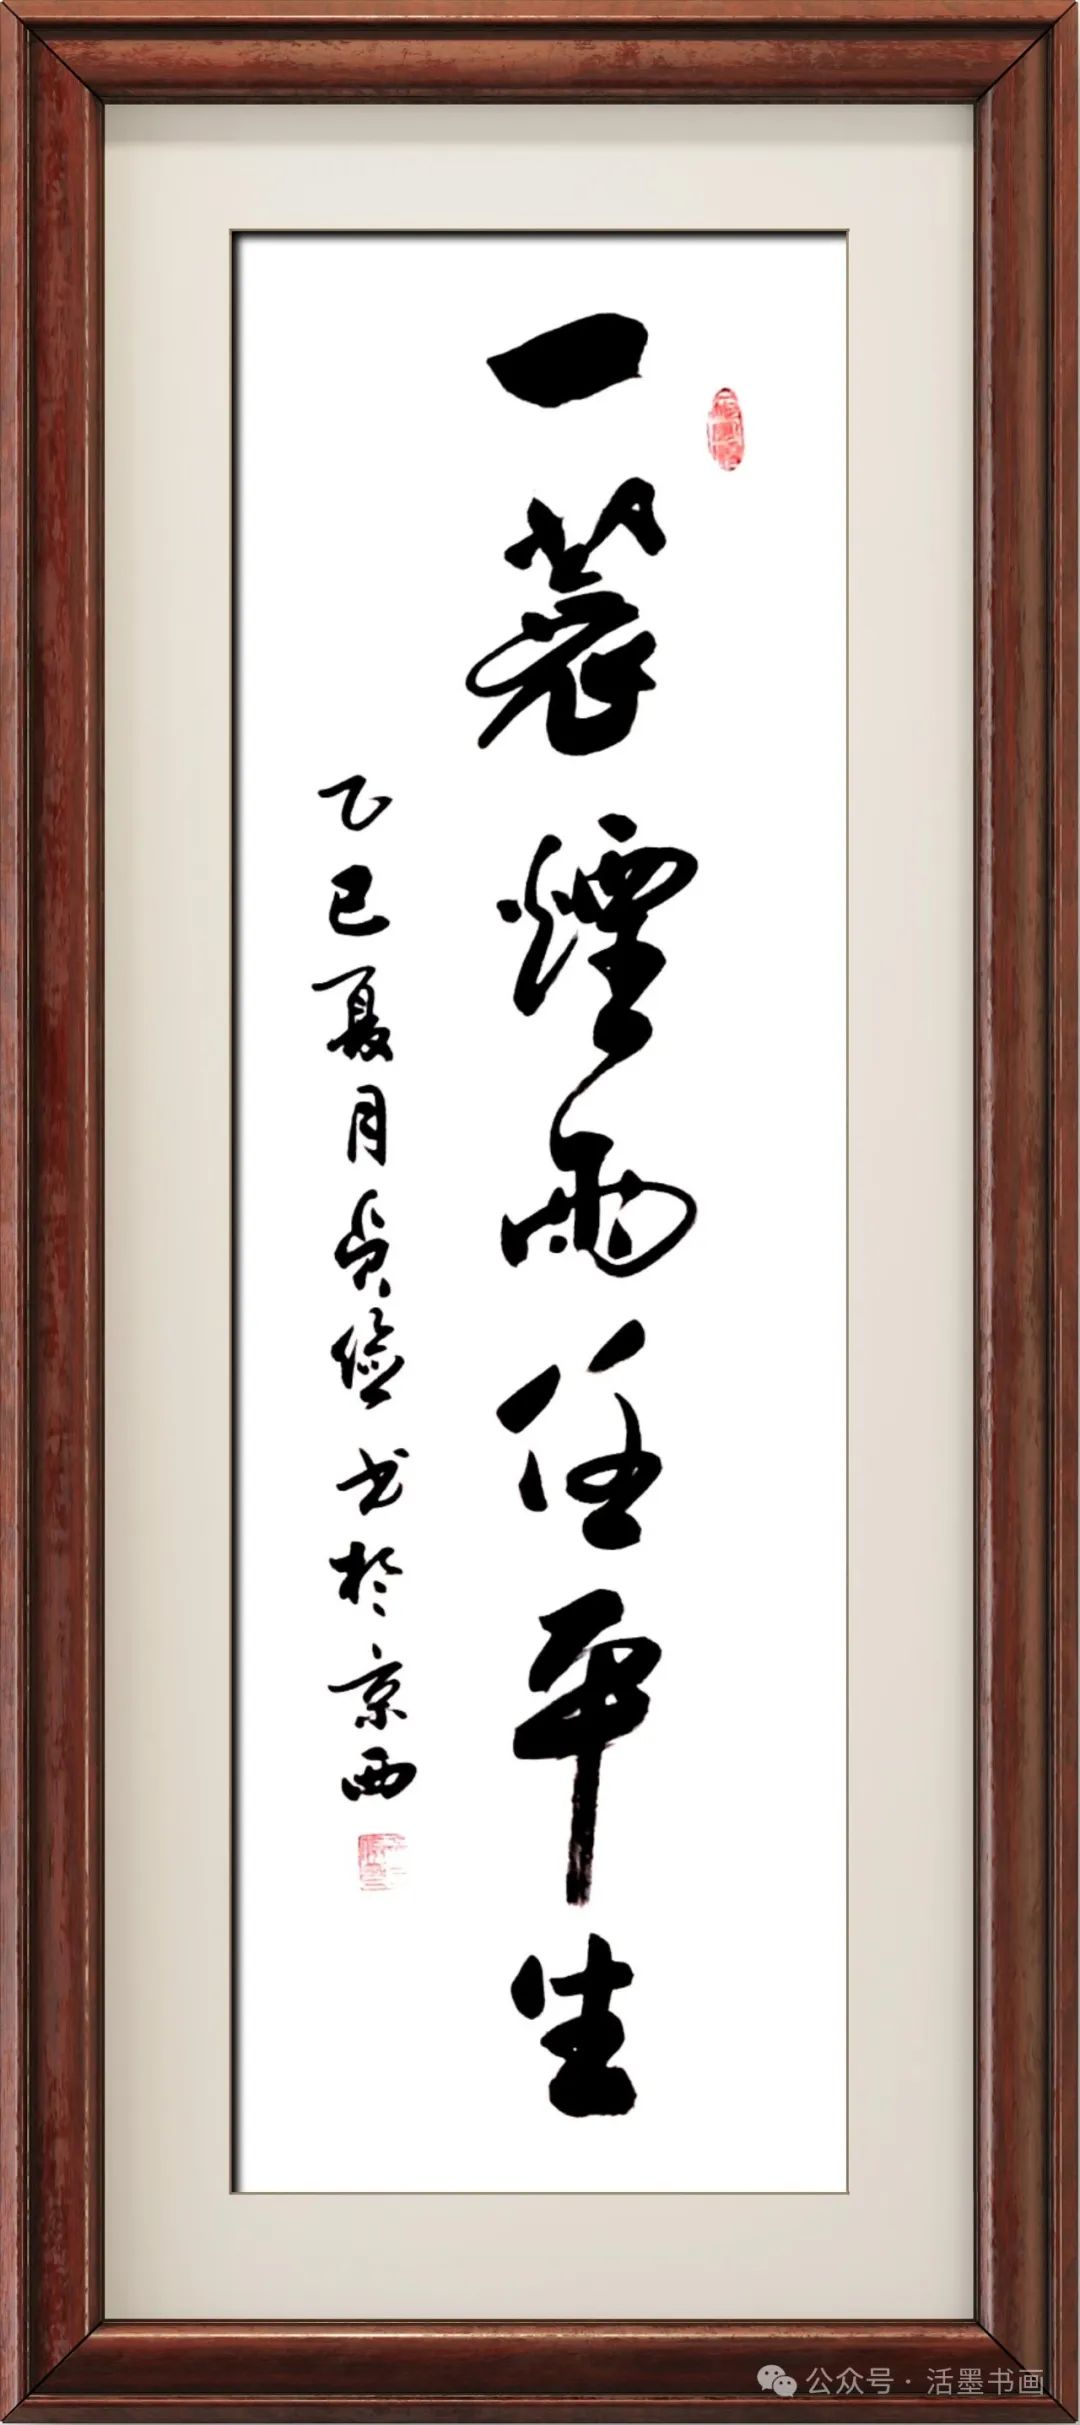 一蓑煙雨任平生
乙巳夏月贞俭书於京西
公众号·活墨书画